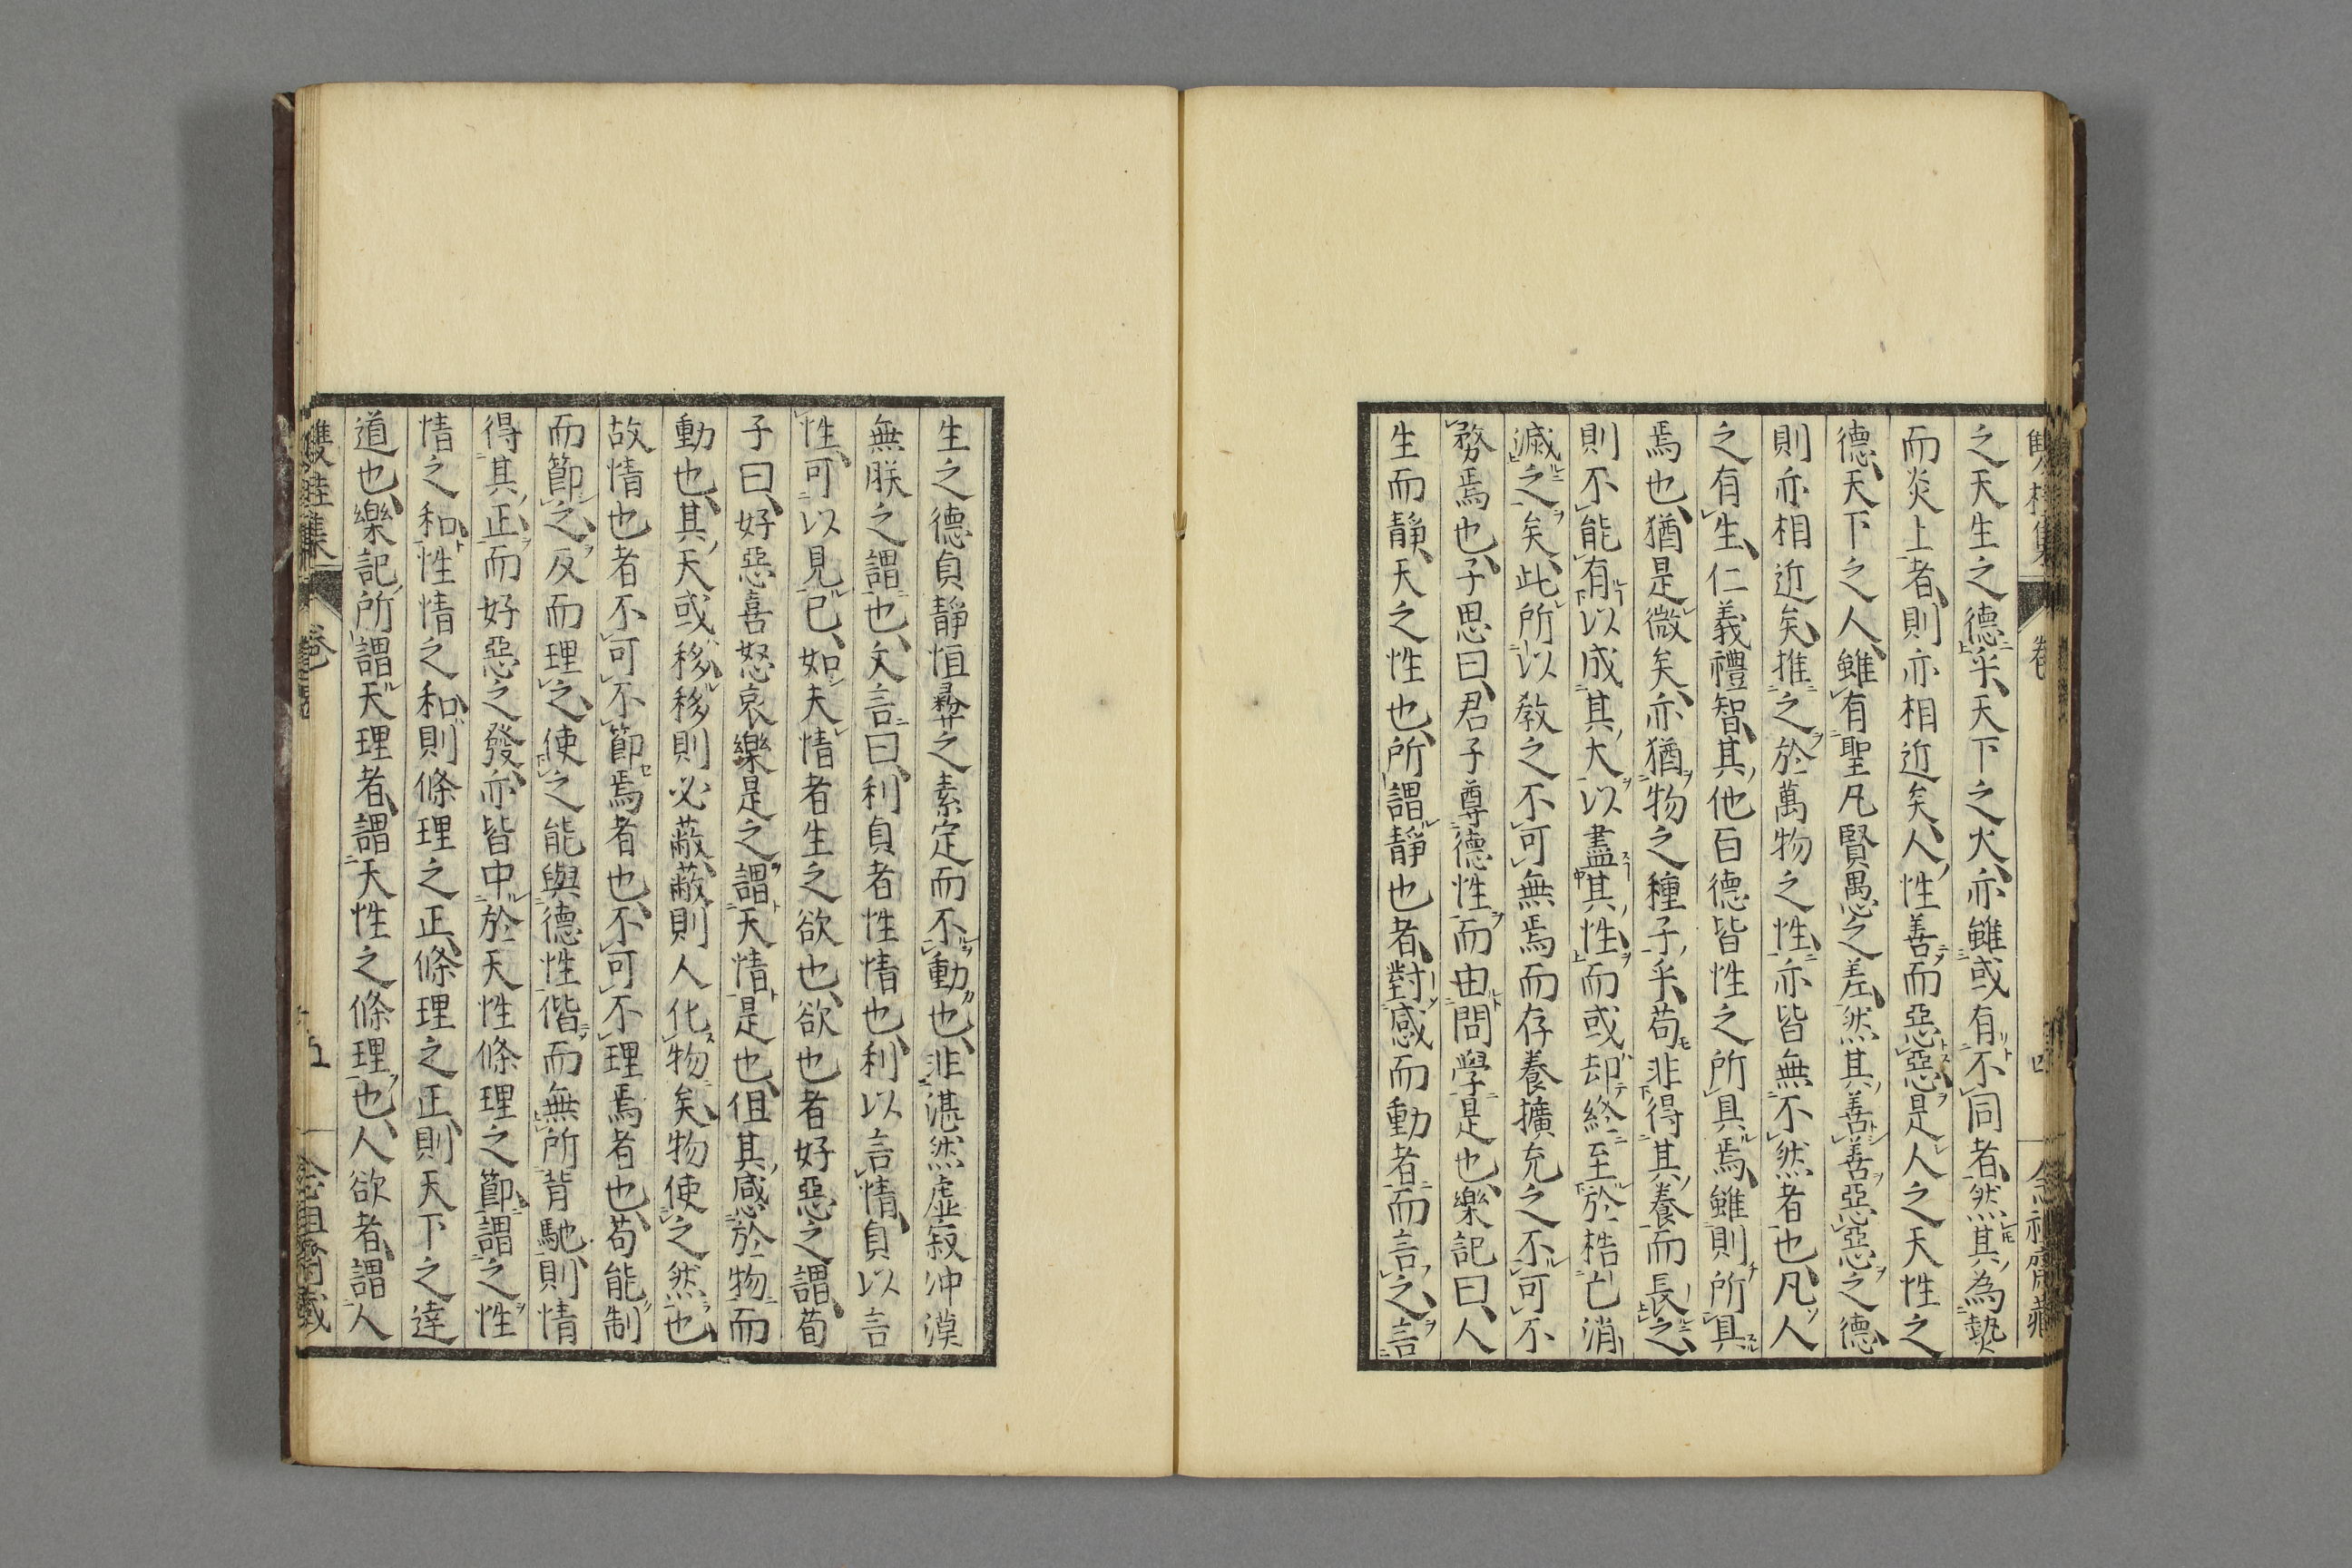 之天生之德乎、天下之火、亦雖或有不同者、然其為熱
而炎上者、則亦相近矣、人性善而惡惡是人之天性之
德、天下之人、雖有聖凡賢愚之差、然其善善惡惡之德、
則亦相近矣、推之於萬物之性、亦皆無不然者也、凡人
之有生、仁義禮智、其他百德皆性之所具焉、雖則所具
焉也、猶是微矣、亦猶物之種子乎、苟非得其養而長之、
則不能有以成其大以盡其性、而或却終至於梏亡消
滅之矣、此所以敎之不可無焉而存養擴充之不可不
務焉也、子思曰、君子尊德性而由問學是也、樂記曰、人
生而靜、天之性也、所謂靜也者、對感而動者而言之、言
生之德貞靜恒彛之素定而不動也、非湛然虛寂冲漠
無朕之謂也、文言曰、利貞者性情也、利以言情、貞以言
性、可以見已、如夫情者生之欲也、欲也者好惡之謂、荀
子曰、好惡喜怒哀樂是之謂天情是也、但其感於物而
動也、其天或移、移則必蔽、蔽則人化物矣、物使之然也、
故情也者不可不節焉者也、不可不理焉者也、苟能制
而節之、反而理之、使之能與德性偕而無所背馳、則情
得其正、而好惡之發、亦皆中於天性條理之節、謂之性
情之和、性情之和、則條理之正、條理之正、則天下之達
道也、樂記所謂天理者、謂天性之條理也、人欲者、謂人
雙桂集
卷
五